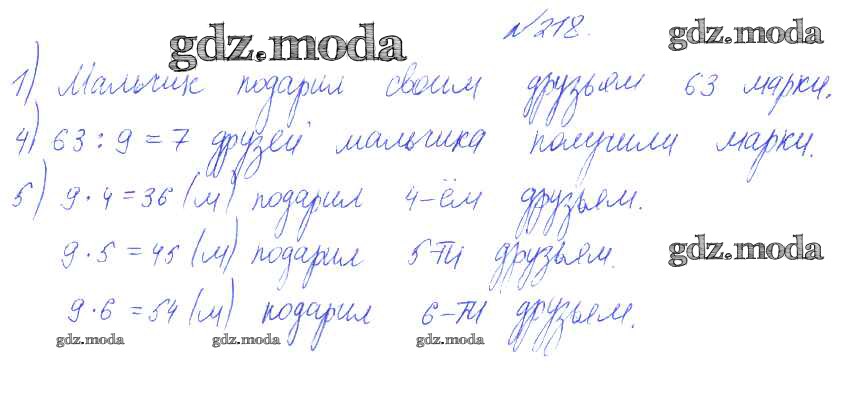 gdz.moda №218. gdz.moda
1) Мальчик подарил своим друзьям 63 марки.
4) 63 : 9 = 7 друзей мальчика получили марки.
5) 9 · 4 = 36 (м) подарил 4-ём друзьям.
9 · 5 = 45 (м) подарил 5ти друзьям. gdz.moda
9 · 6 = 54 (м) подарил 6-ти друзьям.
gdz.moda gdz.moda gdz.moda gdz.moda